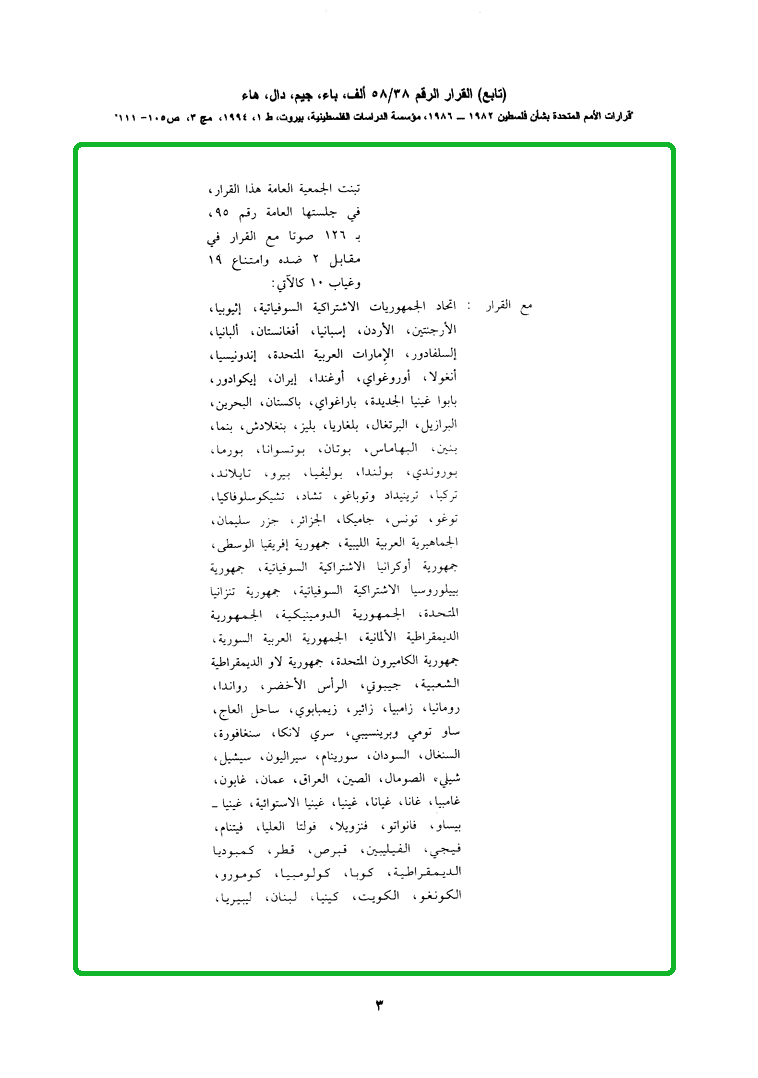 (تابع) القرار الرقم ٥٨/٣٨ ألف، باء، جيم، دال، هاء
"قرارات الأمم المتحدة بشأن فلسطين ١٩٨٢ ــ ١٩٨٦، مؤسسة الدراسات الفلسطينية، بيروت، ط ١، ١٩٩٤، مج ٣، ص١٠٥- ١١١"
تبنت الجمعية العامة هذا القرار،
في جلستها العامة رقم ٩٥،
بـ ١٢٦ صوتا مع القرار في
مقابل ٢ ضده وامتناع ١٩
وغياب ١٠ كالآتي:
مع القرار : اتحاد الجمهوريات الاشتراكية السوفياتية، إثيوبيا،
الأرجنتين، الأردن، إسبانيا، أفغانستان، ألبانيا،
إلسلفادور، الإمارات العربية المتحدة، إندونيسيا،
أنغولا، أوروغواي، أوغندا، إيران، إيكوادور،
بابوا غينيا الجديدة، باراغواي، باكستان، البحرين،
البرازيل، البرتغال، بلغاريا، بليز، بنغلادش، بنما،
بنين، البهاماس، بوتان، بوتسوانا، بورما،
بوروندي، بولندا، بوليفيا، بيرو، تايلاند،
تركيا، ترينيداد وتوباغو، تشاد، تشيكوسلوفاكيا،
توغو، تونس، جاميكا، الجزائر، جزر سليمان،
الجماهيرية العربية الليبية، جمهورية إفريقيا الوسطى،
جمهورية أوكرانيا الاشتراكية السوفياتية، جمهورية
بييلوروسيا الاشتراكية السوفياتية، جمهورية تنزانيا
المتحدة، الجمهورية الدومينيكية، الجمهورية
الديمقراطية الألمانية، الجمهورية العربية السورية،
جمهورية الكاميرون المتحدة، جمهورية لاو الديمقراطية
الشعبية، جيبوتي، الرأس الأخضر، رواندا،
رومانيا، زامبيا، زائير، زيمبابوي، ساحل العاج،
ساو تومي وبرينسيبي، سري لانكا، سنغافورة،
السنغال، السودان، سورينام، سيراليون، سيشيل،
شيلي، الصومال، الصين، العراق، عمان، غابون،
غامبيا، غانا، غيانا، غينيا، غينيا الاستوائية، غينيا ــ
بيساو، فانواتو، فنزويلا، فولتا العليا، فيتنام،
فيجي، الفيليبين، قبرص، قطر، كمبوديا
الديمقراطية، كوبا، كولومبيا، كومورو،
الكونغو، الكويت، كينيا، لبنان، ليبيريا،
٣